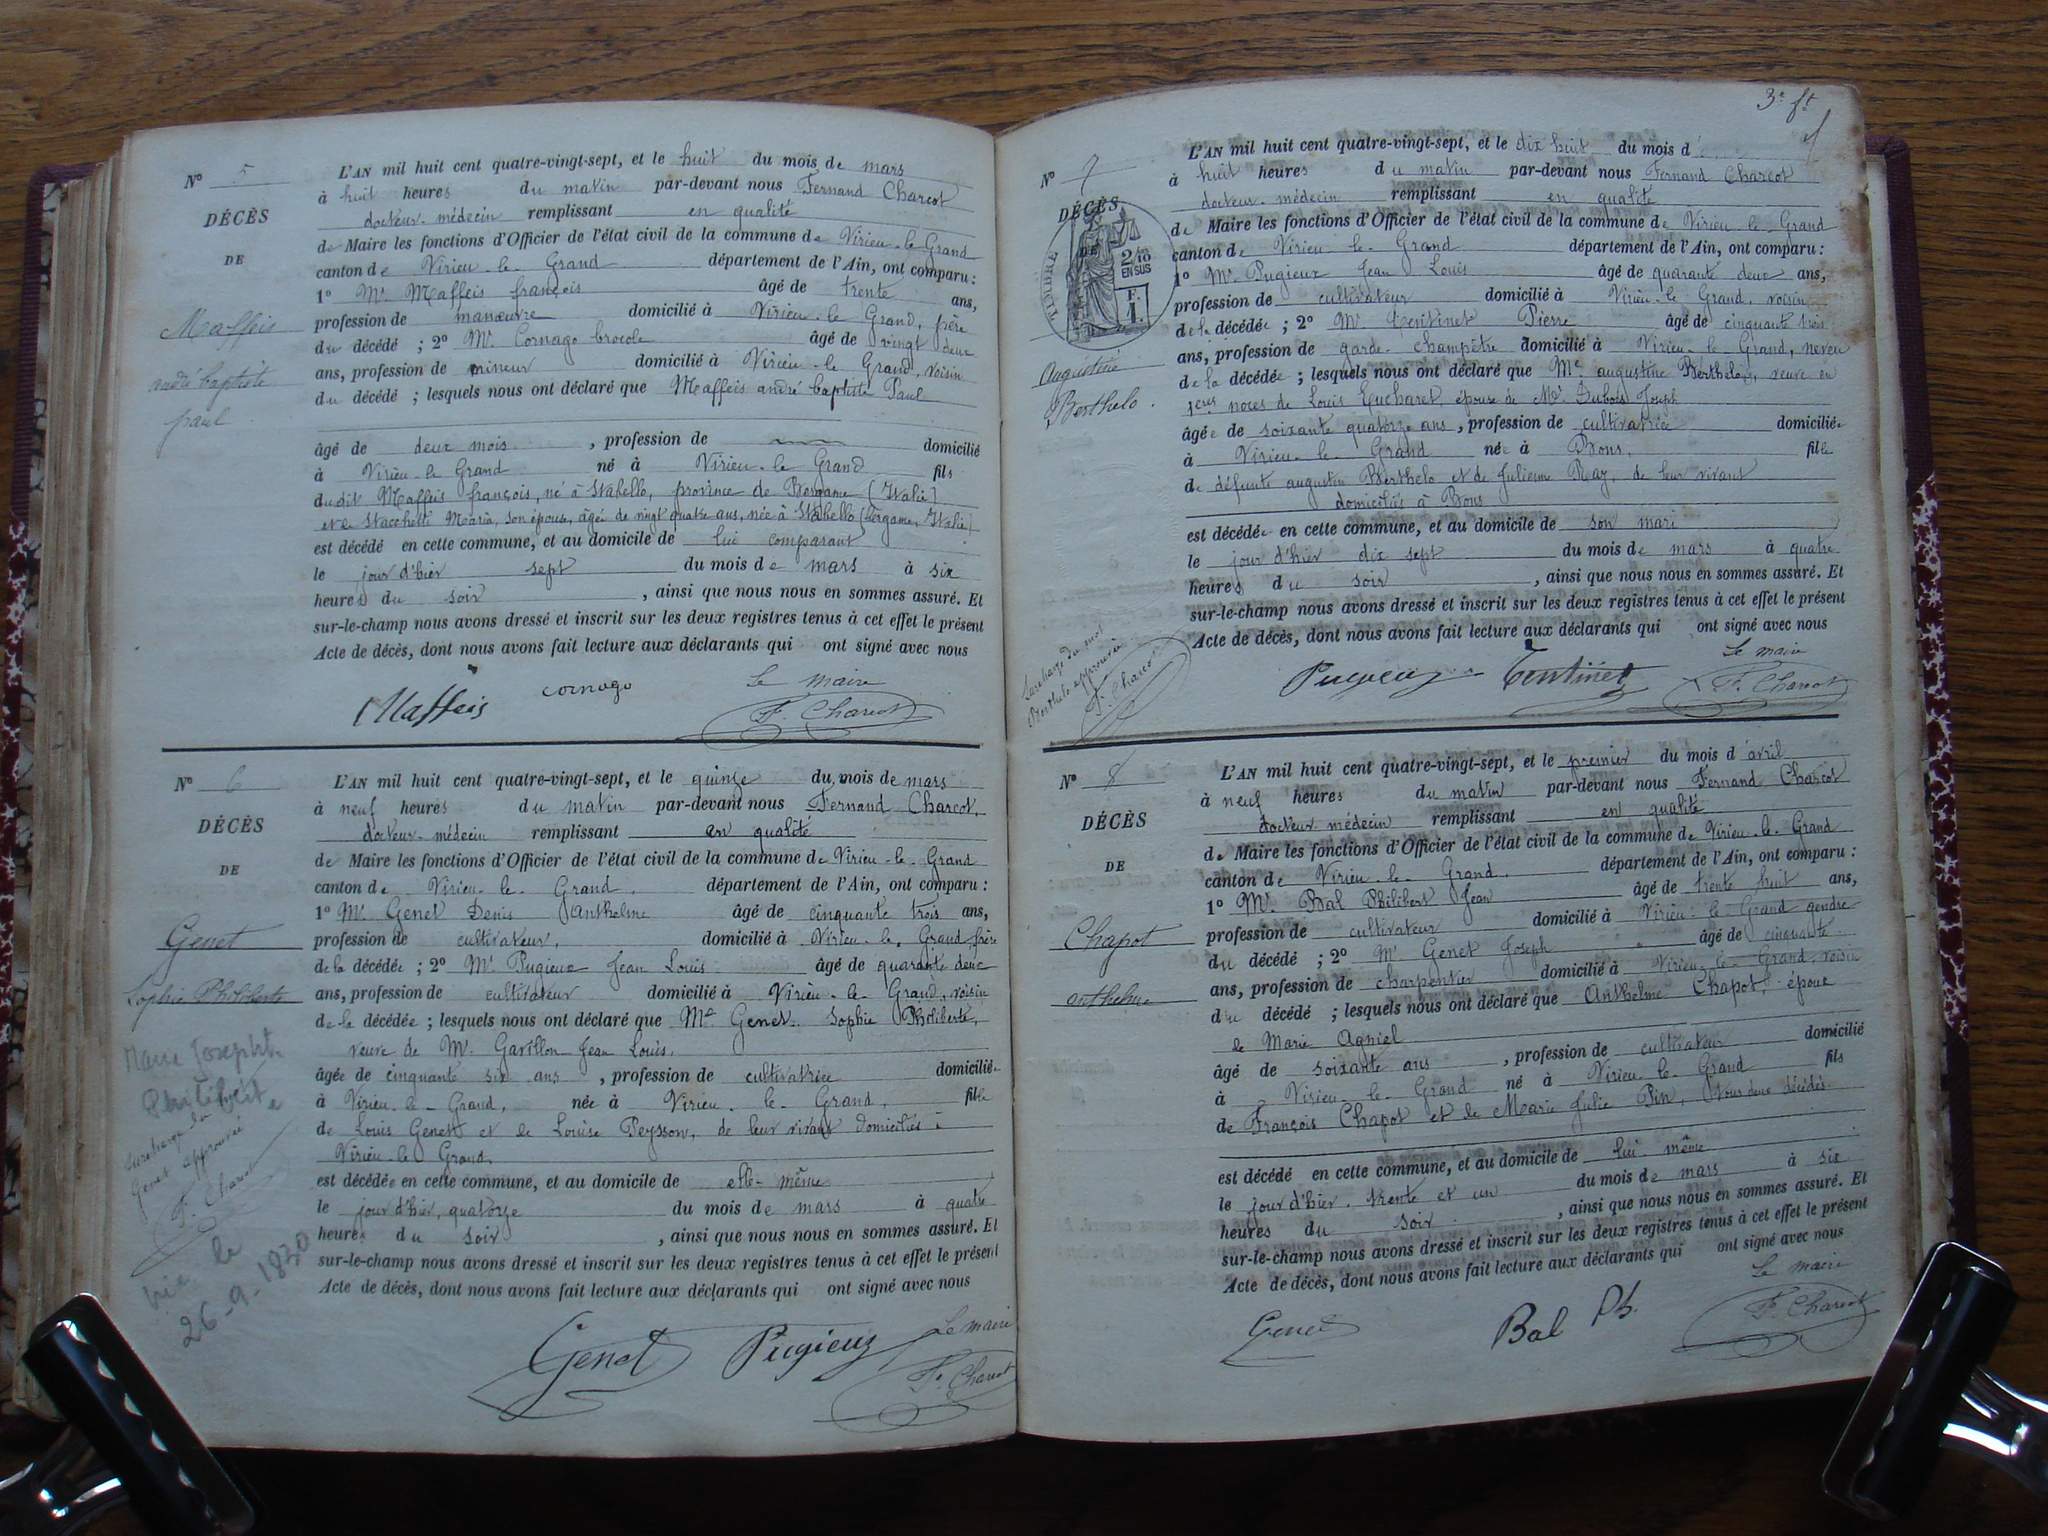 N° 5
DÉCÈS
DE
Maffeis
andré baptiste
paul
L'AN mil huit cent quatre-vingt-sept, et le huit du mois de mars
à huit heures du matin par-devant nous Fernand Charcot
docteur-médecin remplissant en qualité
de Maire les fonctions d'Officier de l'état civil de la commune de Virieu-le-Grand
canton de Virieu-le-Grand département de l'Ain, ont comparu :
1° Mr Maffeis françois âgé de trente ans,
profession de manœuvre domicilié à Virieu-le Grand, père
du décédé ; 2° Mr Cornago brocole âgé de vingt deux
ans, profession de mineur domicilié à Virieu-le Grand, voisin
du décédé ; lesquels nous ont déclaré que Maffeis andré baptiste Paul
âgé de deux mois , profession de domicilié
à Virieu-le Grand né à Virieu-le Grand fils
du dit Maffeis françois, né à Stabello, province de Bergame (Italie)
et de Stacchetti Maria, son épouse, âgée de vingt quatre ans, née à Stabello (Bergame, Italie)
est décédé en cette commune, et au domicile de lui comparant
le jour d'hier sept du mois de mars à six
heures du soir , ainsi que nous nous en sommes assuré. Et
sur-le-champ nous avons dressé et inscrit sur les deux registres tenus à cet effet le présent
Acte de décès, dont nous avons fait lecture aux déclarants qui ont signé avec nous
Maffeis cornago Le maire
F. Charcot
N° 6
DÉCÈS
DE
Genet
Sophie Philiberte
Marie Josephte
Philiberte
Surcharge du
Genet approuvée
F. Charcot
le
26-9-1830
L'AN mil huit cent quatre-vingt-sept, et le quinze du mois de mars
à neuf heures du matin par-devant nous Fernand Charcot,
docteur-médecin remplissant en qualité
de Maire les fonctions d'Officier de l'état civil de la commune de Virieu-le-Grand
canton de Virieu-le-Grand. département de l'Ain, ont comparu :
1° Mr Genet Denis Anthelme âgé de cinquante trois ans,
profession de cultivateur, domicilié à Virieu-le-Grand frère
de la décédée ; 2° Mr Pugieux Jean Louis âgé de quarante deux
ans, profession de cultivateur domicilié à Virieu-le-Grand, voisin
de la décédée ; lesquels nous ont déclaré que Me Genet Sophie Philiberte,
veuve de Mr Gavillon Jean Louis.
âgée de cinquante six ans , profession de cultivatrice domiciliée
à Virieu-le-Grand, née à Virieu-le-Grand, fille
de Louis Genet et de Louise Peysson, de leur vivant domiciliés à
Virieu-le Grand.
est décédée en cette commune, et au domicile de elle-même
le jour d'hier, quatorze du mois de mars à quatre
heures du soir , ainsi que nous nous en sommes assuré. Et
sur-le-champ nous avons dressé et inscrit sur les deux registres tenus à cet effet le présent
Acte de décès, dont nous avons fait lecture aux déclarants qui ont signé avec nous
Genet Pugieux Le maire
F. Charcot
3e ft
N° 7
DÉCÈS
DE
TIMBRE
2/10
EN SUS
F.
1.
Augustine
Berthelo.
Surcharge du mot
Berthelo approuvée
F. Charcot
L'AN mil huit cent quatre-vingt-sept, et le dix huit du mois d
à huit heures du matin par-devant nous Fernand Charcot
docteur-médecin remplissant en qualité
de Maire les fonctions d'Officier de l'état civil de la commune de Virieu-le-Grand
canton de Virieu-le-Grand département de l'Ain, ont comparu :
1° Mr Pugieux Jean Louis âgé de quarante deux ans,
profession de cultivateur domicilié à Virieu-le Grand, voisin
de la décédée ; 2° Mr Tentinet Pierre âgé de cinquante trois
ans, profession de garde-champêtre domicilié à Virieu-le-Grand, neveu
de la décédée ; lesquels nous ont déclaré que Me augustine Berthelo, veuve en
1ères noces de Louis Eucharet, épouse de Mr Dubois Joseph
âgée de soixante quatorze ans , profession de cultivatrice domiciliée
à Virieu-le Grand née à Bons, fille
de défunts augustin Berthelo et de Julienne Ray, de leur vivant
domiciliés à Bons
est décédée en cette commune, et au domicile de son mari
le jour d'hier dix sept du mois de mars à quatre
heures du soir , ainsi que nous nous en sommes assuré. Et
sur-le-champ nous avons dressé et inscrit sur les deux registres tenus à cet effet le présent
Acte de décès, dont nous avons fait lecture aux déclarants qui ont signé avec nous
Pugieux Tentinet Le maire
F. Charcot
N° 8
DÉCÈS
DE
Chapot
anthelme
L'AN mil huit cent quatre-vingt-sept, et le premier du mois d'avril
à neuf heures du matin par-devant nous Fernand Charcot
docteur médecin remplissant en qualité
de Maire les fonctions d'Officier de l'état civil de la commune de Virieu-le-Grand
canton de Virieu-le-Grand. département de l'Ain, ont comparu :
1° Mr Bal Philibert Jean âgé de trente huit ans,
profession de cultivateur domicilié à Virieu-le-Grand gendre
du décédé ; 2° Mr Genet Joseph âgé de cinquante
ans, profession de charpentier domicilié à Virieu-le-Grand, voisin
du décédé ; lesquels nous ont déclaré que Anthelme Chapot, époux
de Marie Agniel
âgé de soixante ans , profession de cultivateur domicilié
à Virieu-le Grand né à Virieu-le Grand fils
de François Chapot et de Marie Julie Pin, tous deux décédés
est décédé en cette commune, et au domicile de lui-même
le jour d'hier, trente et un du mois de mars à six
heures du soir , ainsi que nous nous en sommes assuré. Et
sur-le-champ nous avons dressé et inscrit sur les deux registres tenus à cet effet le présent
Acte de décès, dont nous avons fait lecture aux déclarants qui ont signé avec nous
Genet Bal Ph. Le maire
F. Charcot